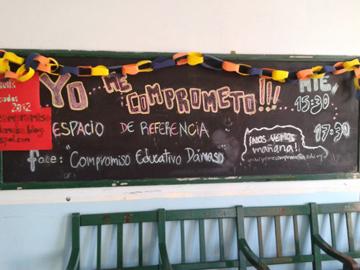 YO ME COMPROMETO!!!
ESPACIO DE REFERENCIA
face: "Compromiso Educativo Dámaso"
MIE
15:30
17:30
¡NOS VEMOS
mañana!
2012
compromiso